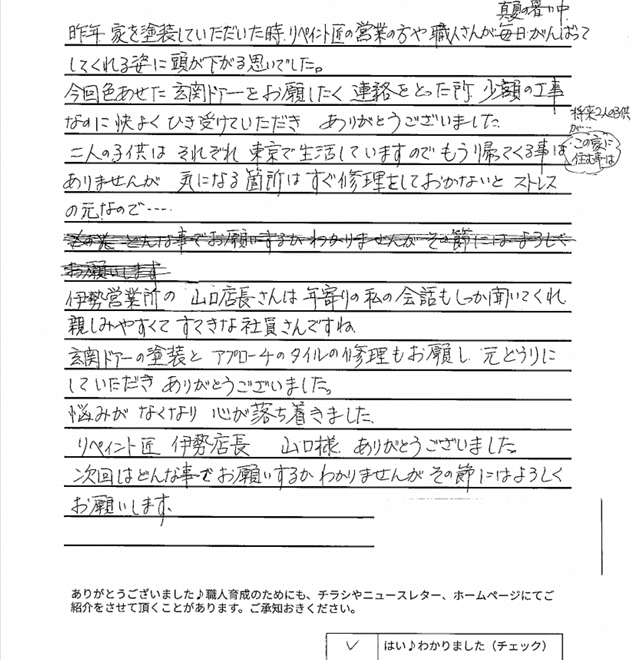 真夏の暑い中
昨年 家を塗装していただいた時、リペイント匠の営業の方や職人さんが毎日がんばって
してくれる姿に頭が下がる思いでした。
今回色あせた玄関ドアーをお願したく 連絡をとった所 少額の工事
なのに快よくひき受けていただき ありがとうございました。
将来2人の子供
が…
この家に
住む事は
二人の子供は それぞれ 東京で生活していますのでもう帰ってくる事は
ありませんが 気になる箇所はすぐ修理をしておかないと ストレス
の元なので……
その先 どんな事でお願いするかわかりませんがその節にはよろしく
お願いします
伊勢営業所の 山口店長さんは年寄りの私の会話もしっか聞いてくれ
親しみやすくてすてきな社員さんですね
玄関ドアーの塗装と アプローチのタイルの修理もお願し 元どうりに
していただき ありがとうございました。
悩みが なくなり 心が落ち着きました。
リペイント匠 伊勢店長 山口様 ありがとうございました。
次回はどんな事でお願いするかわかりませんがその節にはよろしく
お願いします。
ありがとうございました♪職人育成のためにも、チラシやニュースレター、ホームページにてご
紹介をさせて頂くことがあります。ご承知おきください。
✓ はい♪わかりました（チェック）